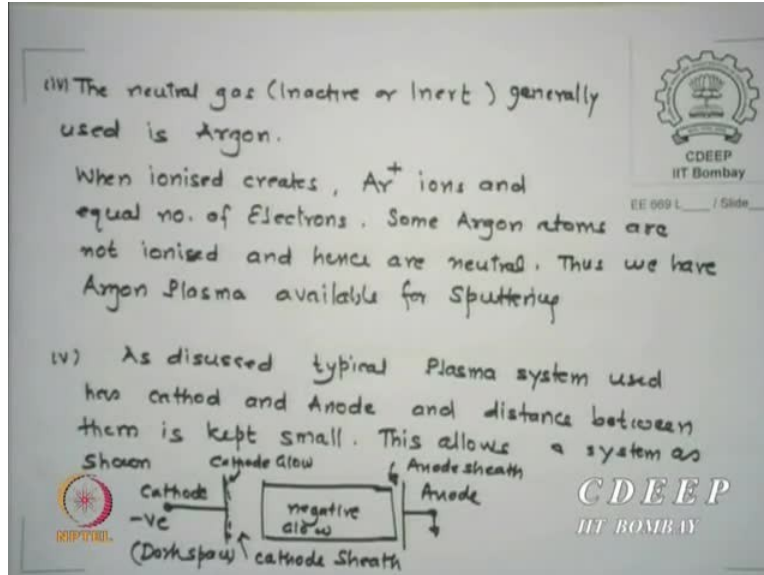 (iv) The neutral gas (Inactive or Inert) generally
used is Argon.
When ionised creates, Ar+ ions and
equal no. of Electrons. Some Argon atoms are
not ionised and hence are neutral. Thus we have
Argon Plasma available for Sputtering
(v) As disussed typical Plasma system used
has cathod and Anode and distance between
them is kept small. This allows a system as
shown
Cathode Glow
Anode sheath
Cathode
-ve
negative
Glow
Anode
(Darkspace)
cathode Sheath
CDEEP
IIT Bombay
EE 669 L___ / Slide__
NPTEL
CDEEP
IIT BOMBAY